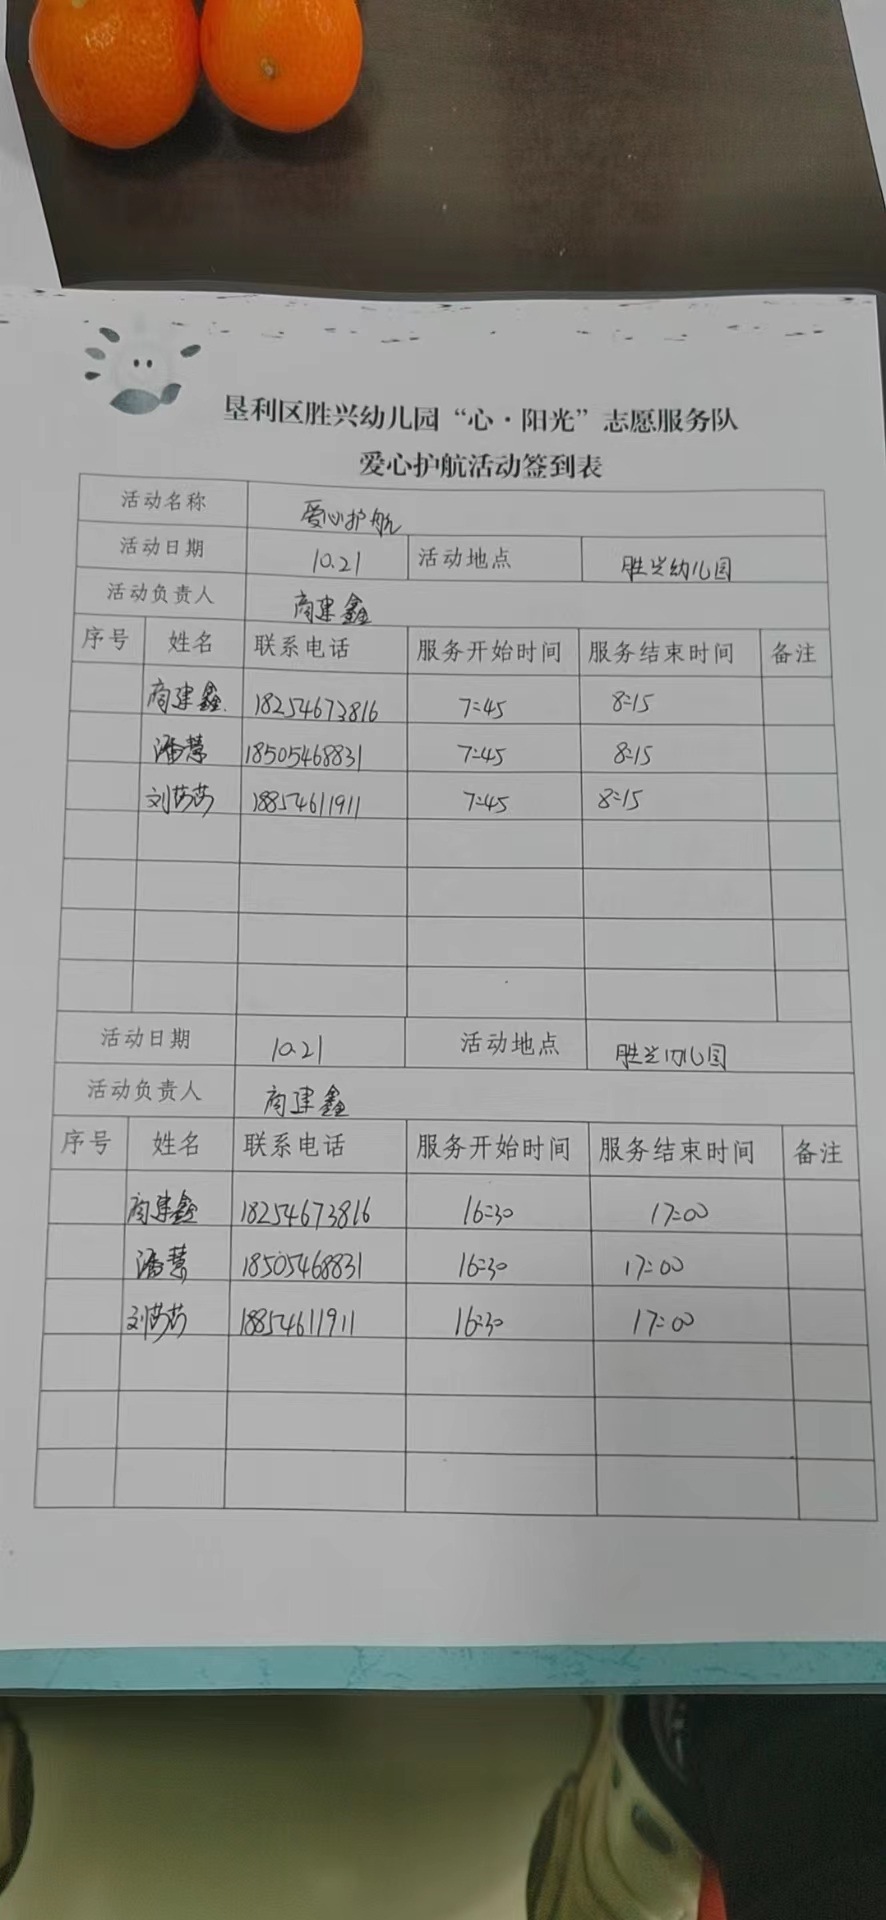 垦利区胜兴幼儿园“心·阳光”志愿服务队
爱心护航活动签到表
活动名称 爱心护航
活动日期 10.21 活动地点 胜兴幼儿园
活动负责人 商建鑫
序号 姓名 联系电话 服务开始时间 服务结束时间 备注
商建鑫 18254673816 7:45 8:15
潘慧 18505468831 7:45 8:15
刘莎莎 18854611911 7:45 8:15
活动日期 10.21 活动地点 胜兴幼儿园
活动负责人 商建鑫
序号 姓名 联系电话 服务开始时间 服务结束时间 备注
商建鑫 18254673816 16:30 17:00
潘慧 18505468831 16:30 17:00
刘莎莎 18854611911 16:30 17:00